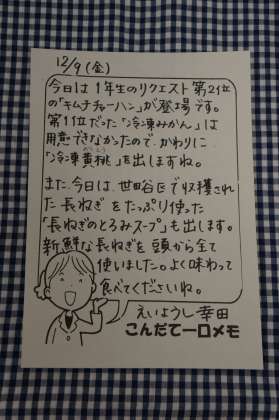 12/9(金)
今日は1年生のリクエスト第2位
の「キムチチャーハン」が登場です。
第1位だった「冷凍みかん」は
用意できなかったので、かわりに
「冷凍黄桃」を出しますね。
また、今日は、世田谷区で収穫され
た長ねぎをたっぷり使った
「長ねぎのとろみスープ」も出します。
新鮮な長ねぎを頭から全て
使いました。よく味わって
食べてくださいね。
えいようし 幸田
こんだて一口メモ